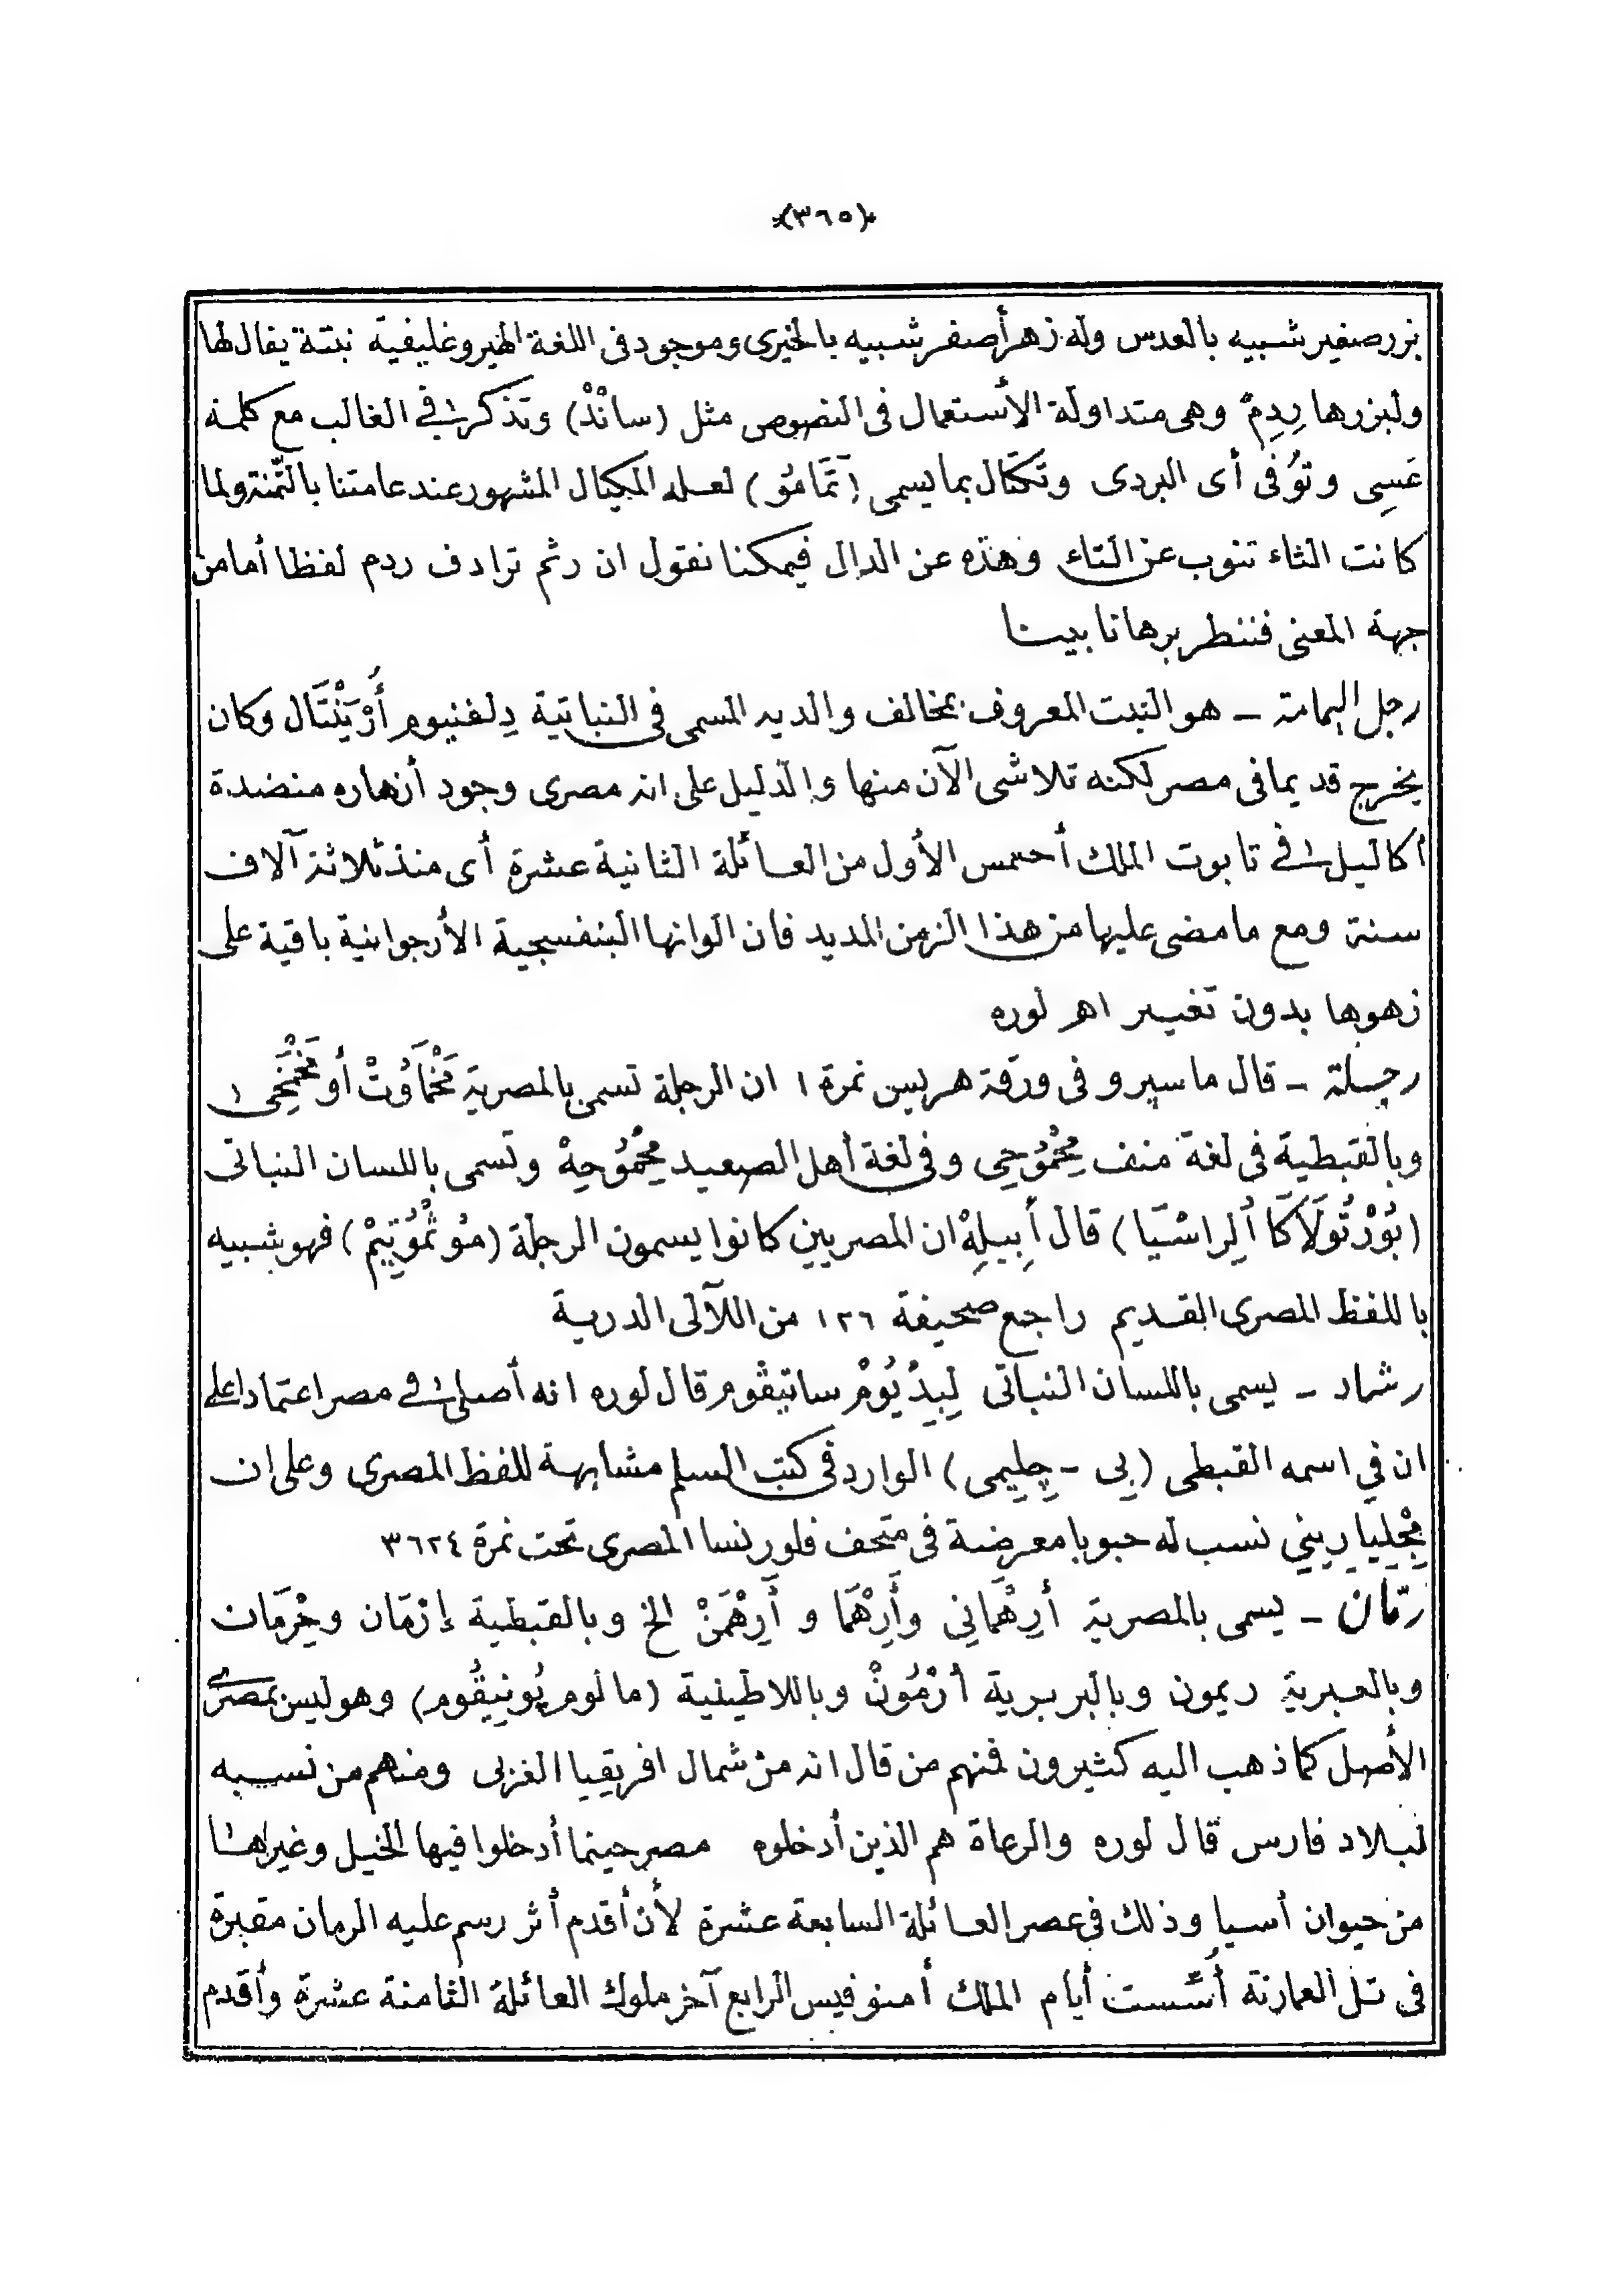 ﴿٣٦٥﴾
بزر صغير شبيه بالعدس وله زهر أصفر شبيه بالخيرى وموجود فى اللغة الهيروغليفية نبتة يقال لها
ولبزرها رِدِمْ وهى متداولة الأستعمال فى النصوص مثل (سانْدْ) وتذكر فى الغالب مع كلمة
عَسِى وتُوفى أى البردى وتكتال بما يسمى (تَمَامُو) لعله المكيال المشهور عند عامتنا بالتّمنة ولما
كانت الثاء تنوب عن التاء وهذه عن الدال فيمكنا نقول ان رثم ترادف ردم لفظا أما من
جهة المعنى فننظر برهانا بينا
رجل اليمامة – هو النبت المعروف بمخالف والديه المسمى فى النباتية دِلفنيوم أُرْيَنْتَال وكان
يخرج قديما فى مصر لكنه تلاشى الآن منها والدليل على انه مصرى وجود أزهاره منضدة
أكاليل فى تابوت الملك أحمس الأول من العائلة الثانية عشرة أى منذ ثلاثة آلاف
سنة ومع ما مضى عليها من هذا الزمن المديد فان الوانها البنفسجية الأرجوانية باقية على
زهوها بدون تغيير اهـ لوره
رجلة – قال ماسپرو فى ورقة هريس نمرة ١ ان الرجلة تسمى بالمصرية مَخْمَاوُتْ أو
وبالقبطية فى لغة منف مِحْمُوحِى وفى لغة أهل الصعيد مِحْمُوحِهْ وتسمى باللسان النباتى
(بُوْرْتُولَاكَا أُلِراسْيَا) قال أَبِيلِهْ ان المصريين كانوا يسمون الرجلة (مُوثْمُوتِيمْ) فهو شبيه
باللفظ المصرى القديم راجع صحيفة ١٢٦ من اللآلى الدرية
رشاد – يسمى باللسان النباتى لِبِدْيُومْ ساتيڤوم قال لوره انه أصلى فى مصر اعتمادا على
ان في اسمه القبطى (پى - چليمى) الوارد فى كتب السلم مشابهة للفظ المصرى وعلى ان
مِجْلِيارينى نسب له حبوبا معرضة فى متحف فلورنسا المصرى تحت نمرة ٣٦٢٤
رمّان – يسمى بالمصرية أَرِهْمَانِى وأَرِهْمَا و أَرِهْمَنْ الخ وبالقبطية إرْمَان وحِرْمَان
وبالعبرية ريمون وبالبربرية أرْمُونْ وباللاطينية (مالوم پُونِيقُوم) وهو ليس بمصرى
الأصل كما ذهب اليه كثيرون فمنهم من قال انه من شمال افريقيا الغربى ومنهم من نسبه
لبلاد فارس قال لوره والرعاة هم الذين أدخلوه مصر حينما أدخلوا فيها الخيل وغيرها
من حيوان أسيا وذلك فى عصر العائلة السابعة عشرة لأن أقدم أثر رسم عليه الرمان مقبرة
فى تل العمارنة أُسّست أيام الملك أمنوفيس الرابع آخر ملوك العائلة الثامنة عشرة وأقدم